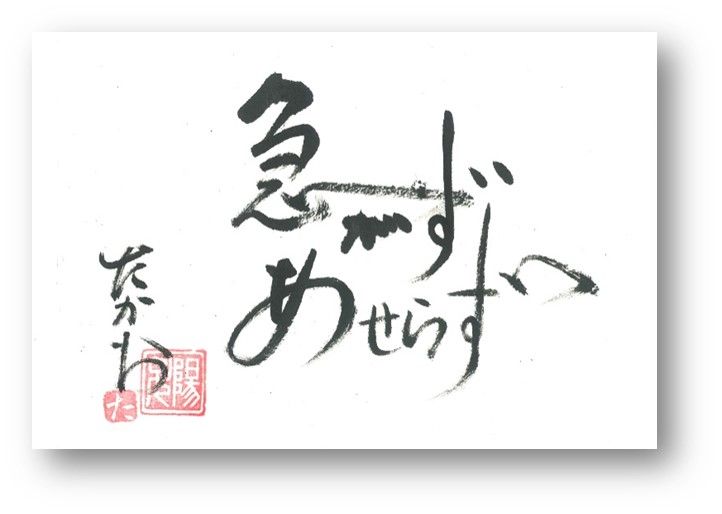 急がず
あせらず
たかお
た
陽